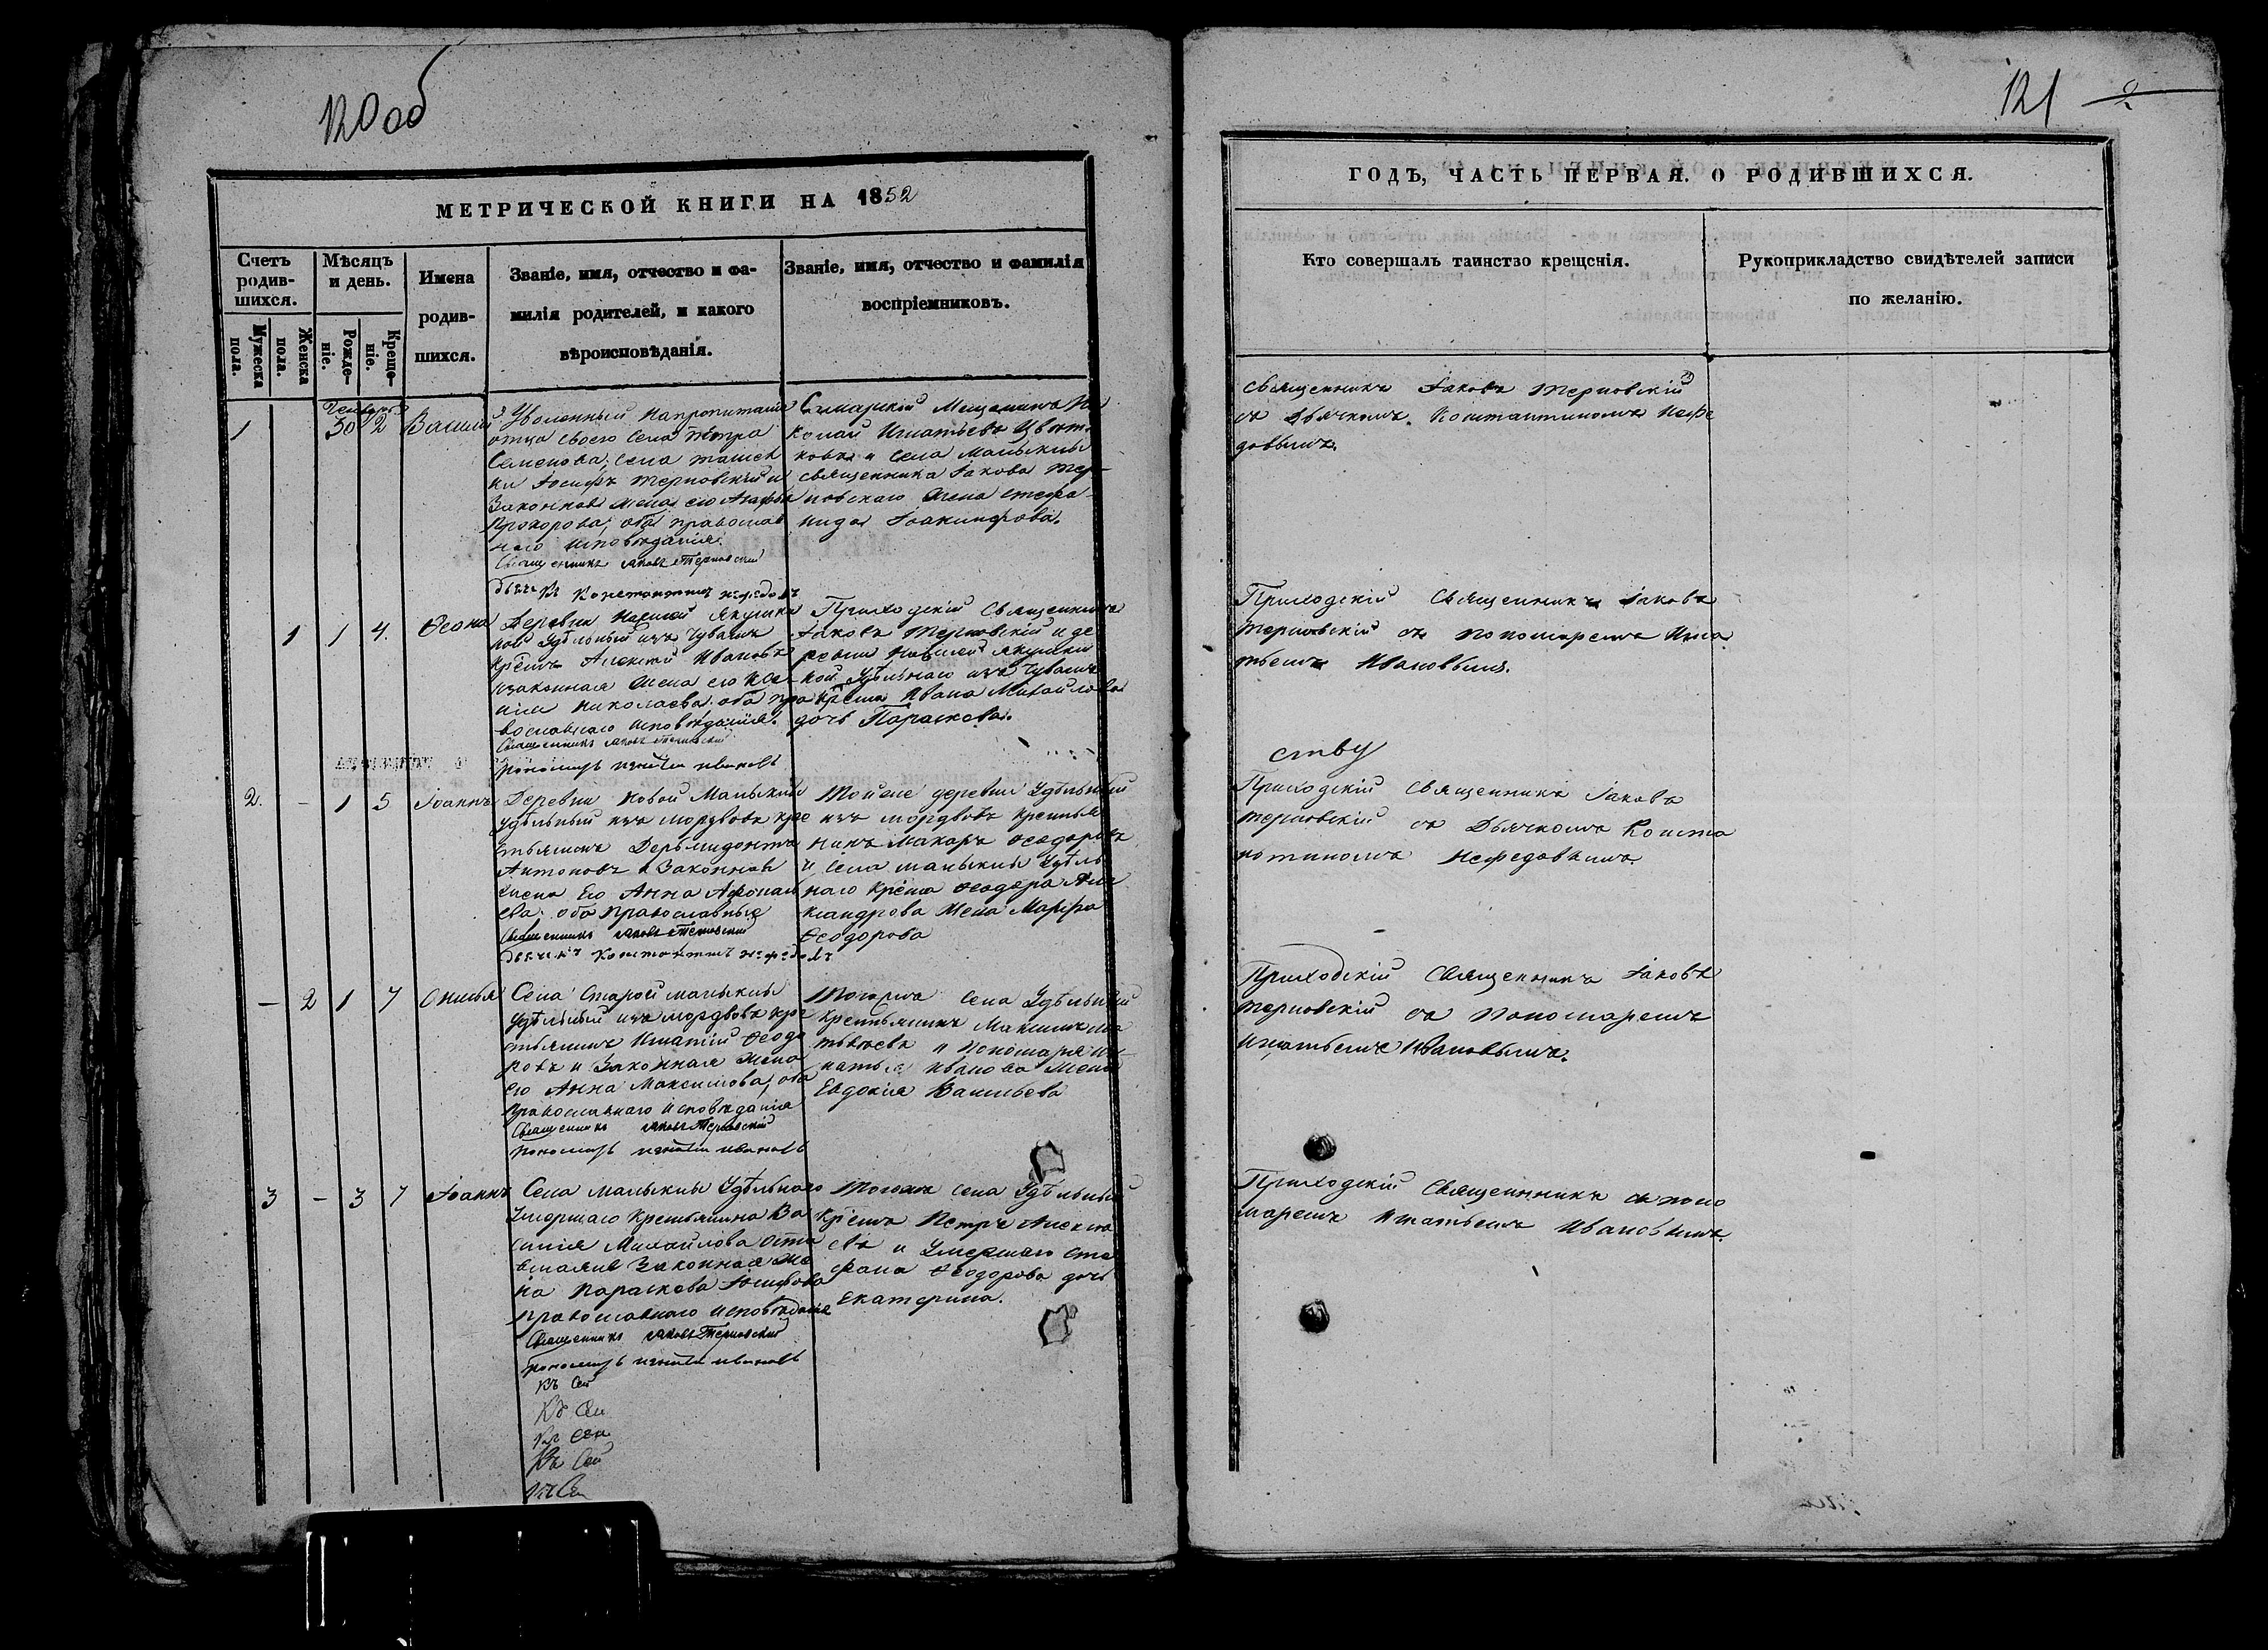 120 об
МЕТРИЧЕСКОЙ КНИГИ НА 1852
Счетъ родив-шихся.
Мѣсяцъ и день.
Имена родив-шихся.
Званіе, имя, отчество и фа-
милія родителей, и какого
вѣроисповѣданія.
Званіе, имя, отчество и фамилія
воспріемниковъ.
Мужеска пола.
Женска пола.
Рожде-ніе.
Креще-ніе.
1
30 2
Василий
Уволенный на пропитаніе
отца своего села Петра
Семенова, села Ташел
ки Іосифъ Терновскій и
Законная жена его Агафья
Прохорова, оба православ
наго исповѣданія.
Священникъ Іаковъ Терновский
дьячекъ Константинъ Нефедовъ
Самарскій Мещанинъ Ни
колай Игнатьевъ Цвѣт
ковъ и села Малыклы
священника Іакова Тер-
новскаго жена Стефа-
нида Іоакинфова.
1 1 4.
Ѳеона
Деревни Новой Якушки
ной Удѣльный изъ Чувашъ
Алексѣй Ивановъ
и законная жена его
Николаева. оба пра
вославнаго исповѣданія.
Священникъ Іаковъ Терновский
Пономарь Игнатій Ивановъ
Приходскій Священникъ
Іаковъ Терновскій и де
ревни Новой Якушкин
ной Удѣльнаго изъ Чувашъ
Ивана Михайлова
дочь Параскева.
2. - 1 5
Іоаннъ
Деревни Новой Малыклы
Удѣльный изъ мордвовъ кре
стьянинъ
Антоновъ и Законная
жена Его Анна Афонась
ева. оба православные
Священникъ Іаковъ Терновский
дьячекъ Константинъ Нефедовъ
Той же деревни Удѣльный
изъ мордвовъ крестья
нинъ Макаръ Ѳеодоровъ
и села Малыклы Удѣль
наго Ѳеодора Але
ксандрова жена Марфа
Ѳеодорова
- 2 1 7
Села Старой Малыклы
Удѣльный изъ мордвовъ кре
стьянинъ Игнатій Ѳеодо
ровъ и Законная жена
его Анна Максимова, оба
православнаго исповѣданія
Священникъ Іаковъ Терновский
Пономарь Игнатій Ивановъ
Тогожъ села Удѣльный
Крестьянинъ Максимъ Ма
твѣевъ и Пономаря Иг
натья Иванова жена
Евдокія Васильева
3 - 3 7
Іоаннъ
Села Малыклы Удѣльнаго
Умершаго Крестьянина Ва
силія Михайлова оста
вшаяся Законная же
на Параскева Іосифова
православнаго исповѣданія
Священникъ Іаковъ Терновский
Пономарь Игнатій Ивановъ
Тогожъ села Удѣльный
Петръ Алексѣ
евъ и Умершаго Сте
фана Ѳеодорова дочь
Екатерина.
121
ГОДЪ, ЧАСТЬ ПЕРВАЯ. О РОДИВШИХСЯ.
Кто совершалъ таинство крещенія.
Рукоприкладство свидѣтелей записи
по желанію.
Священникъ Іаковъ Терновскій
съ дьячкомъ Константиномъ Нефе
довымъ.
Приходскій Священникъ Іаковъ
Терновскій съ пономаремъ Игна
тьемъ Ивановымъ.
ству
Приходскій Священникъ Іаковъ
Терновскій съ Дьячкомъ Конста
нтиномъ Нефедовымъ
Приходскій Священникъ Іаковъ
Терновскій съ Пономаремъ
Игнатьемъ Ивановымъ.
Приходскій Священникъ съ поно
маремъ Игнатьемъ Ивановымъ.